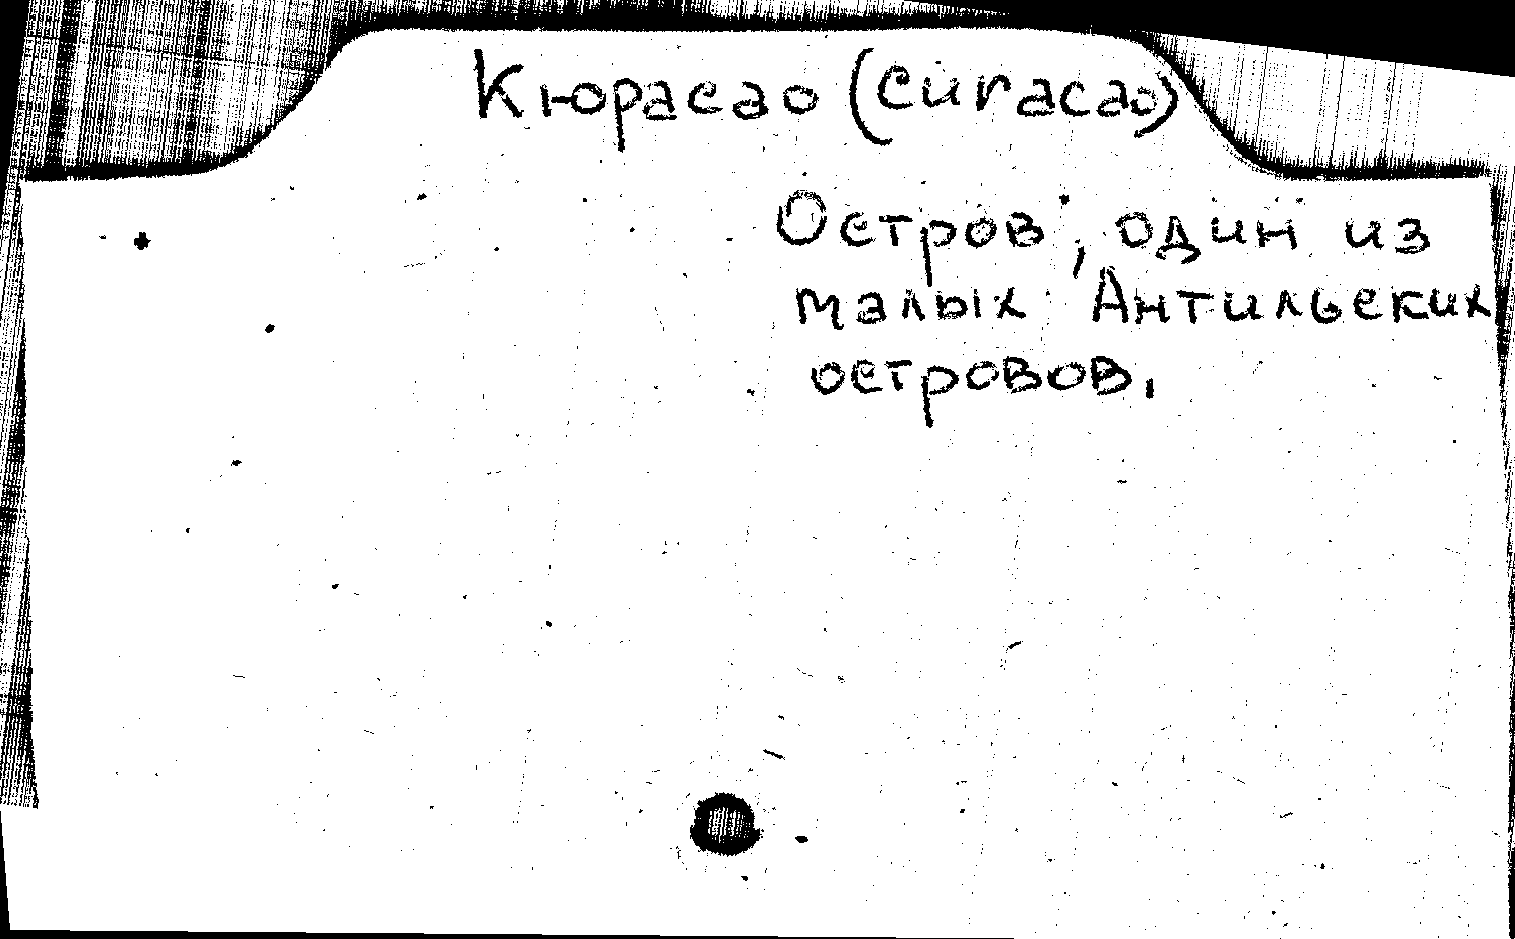 Кюрасао (Curacao)
Остров, один из
малых Антильских
островов.